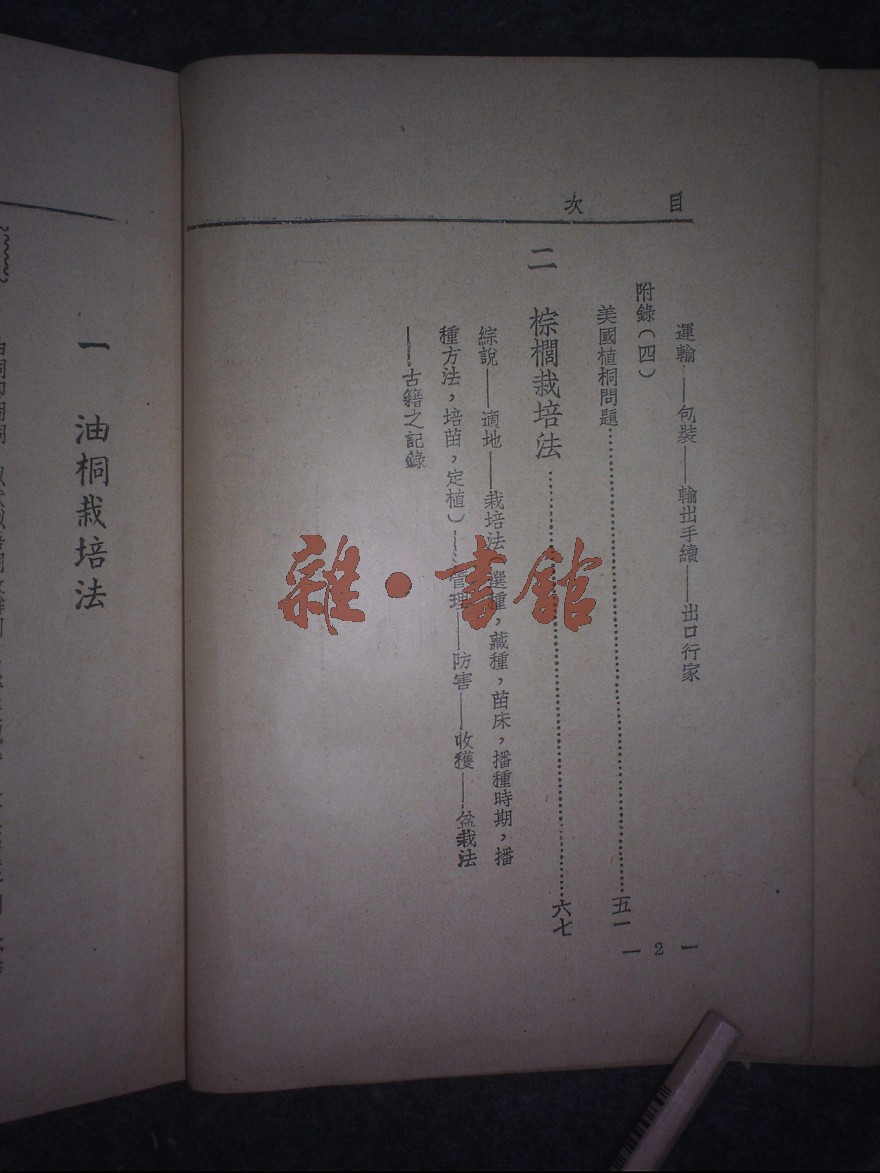 目次
運輸——包裝——輸出手續——出口行家
附錄(四)
美國植桐問題……五一
二 棕櫚栽培法……六七
綜說——適地——栽培法 選種，藏種，苗床，播種時期，播
種方法，培苗，定植)——管理——防害——收穫——盆栽法
——古籍之記錄
— 2 —
一 油桐栽培法
雜·書館